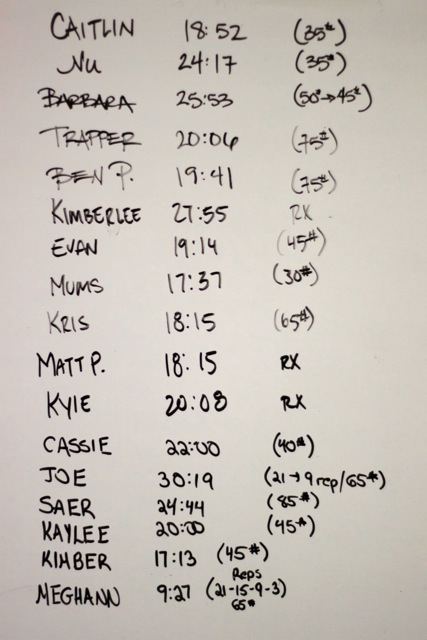 CAITLIN 18:52 (35#)
NU 24:17 (35#)
BARBARA 25:53 (50#→45#)
TRAPPER 20:06 (75#)
BEN P. 19:41 (75#)
KIMBERLEE 27:55 RX
EVAN 19:14 (45#)
MUMS 17:37 (30#)
KRIS 18:15 (65#)
MATT P. 18:15 RX
KYLE 20:08 RX
CASSIE 22:00 (40#)
JOE 30:19 (21→9 rep/65#)
SAER 24:44 (85#)
KAYLEE 20:00 (45#)
KIMBER 17:13 (45#)
Reps
MEGHANN 9:27 (21-15-9-3)
65#